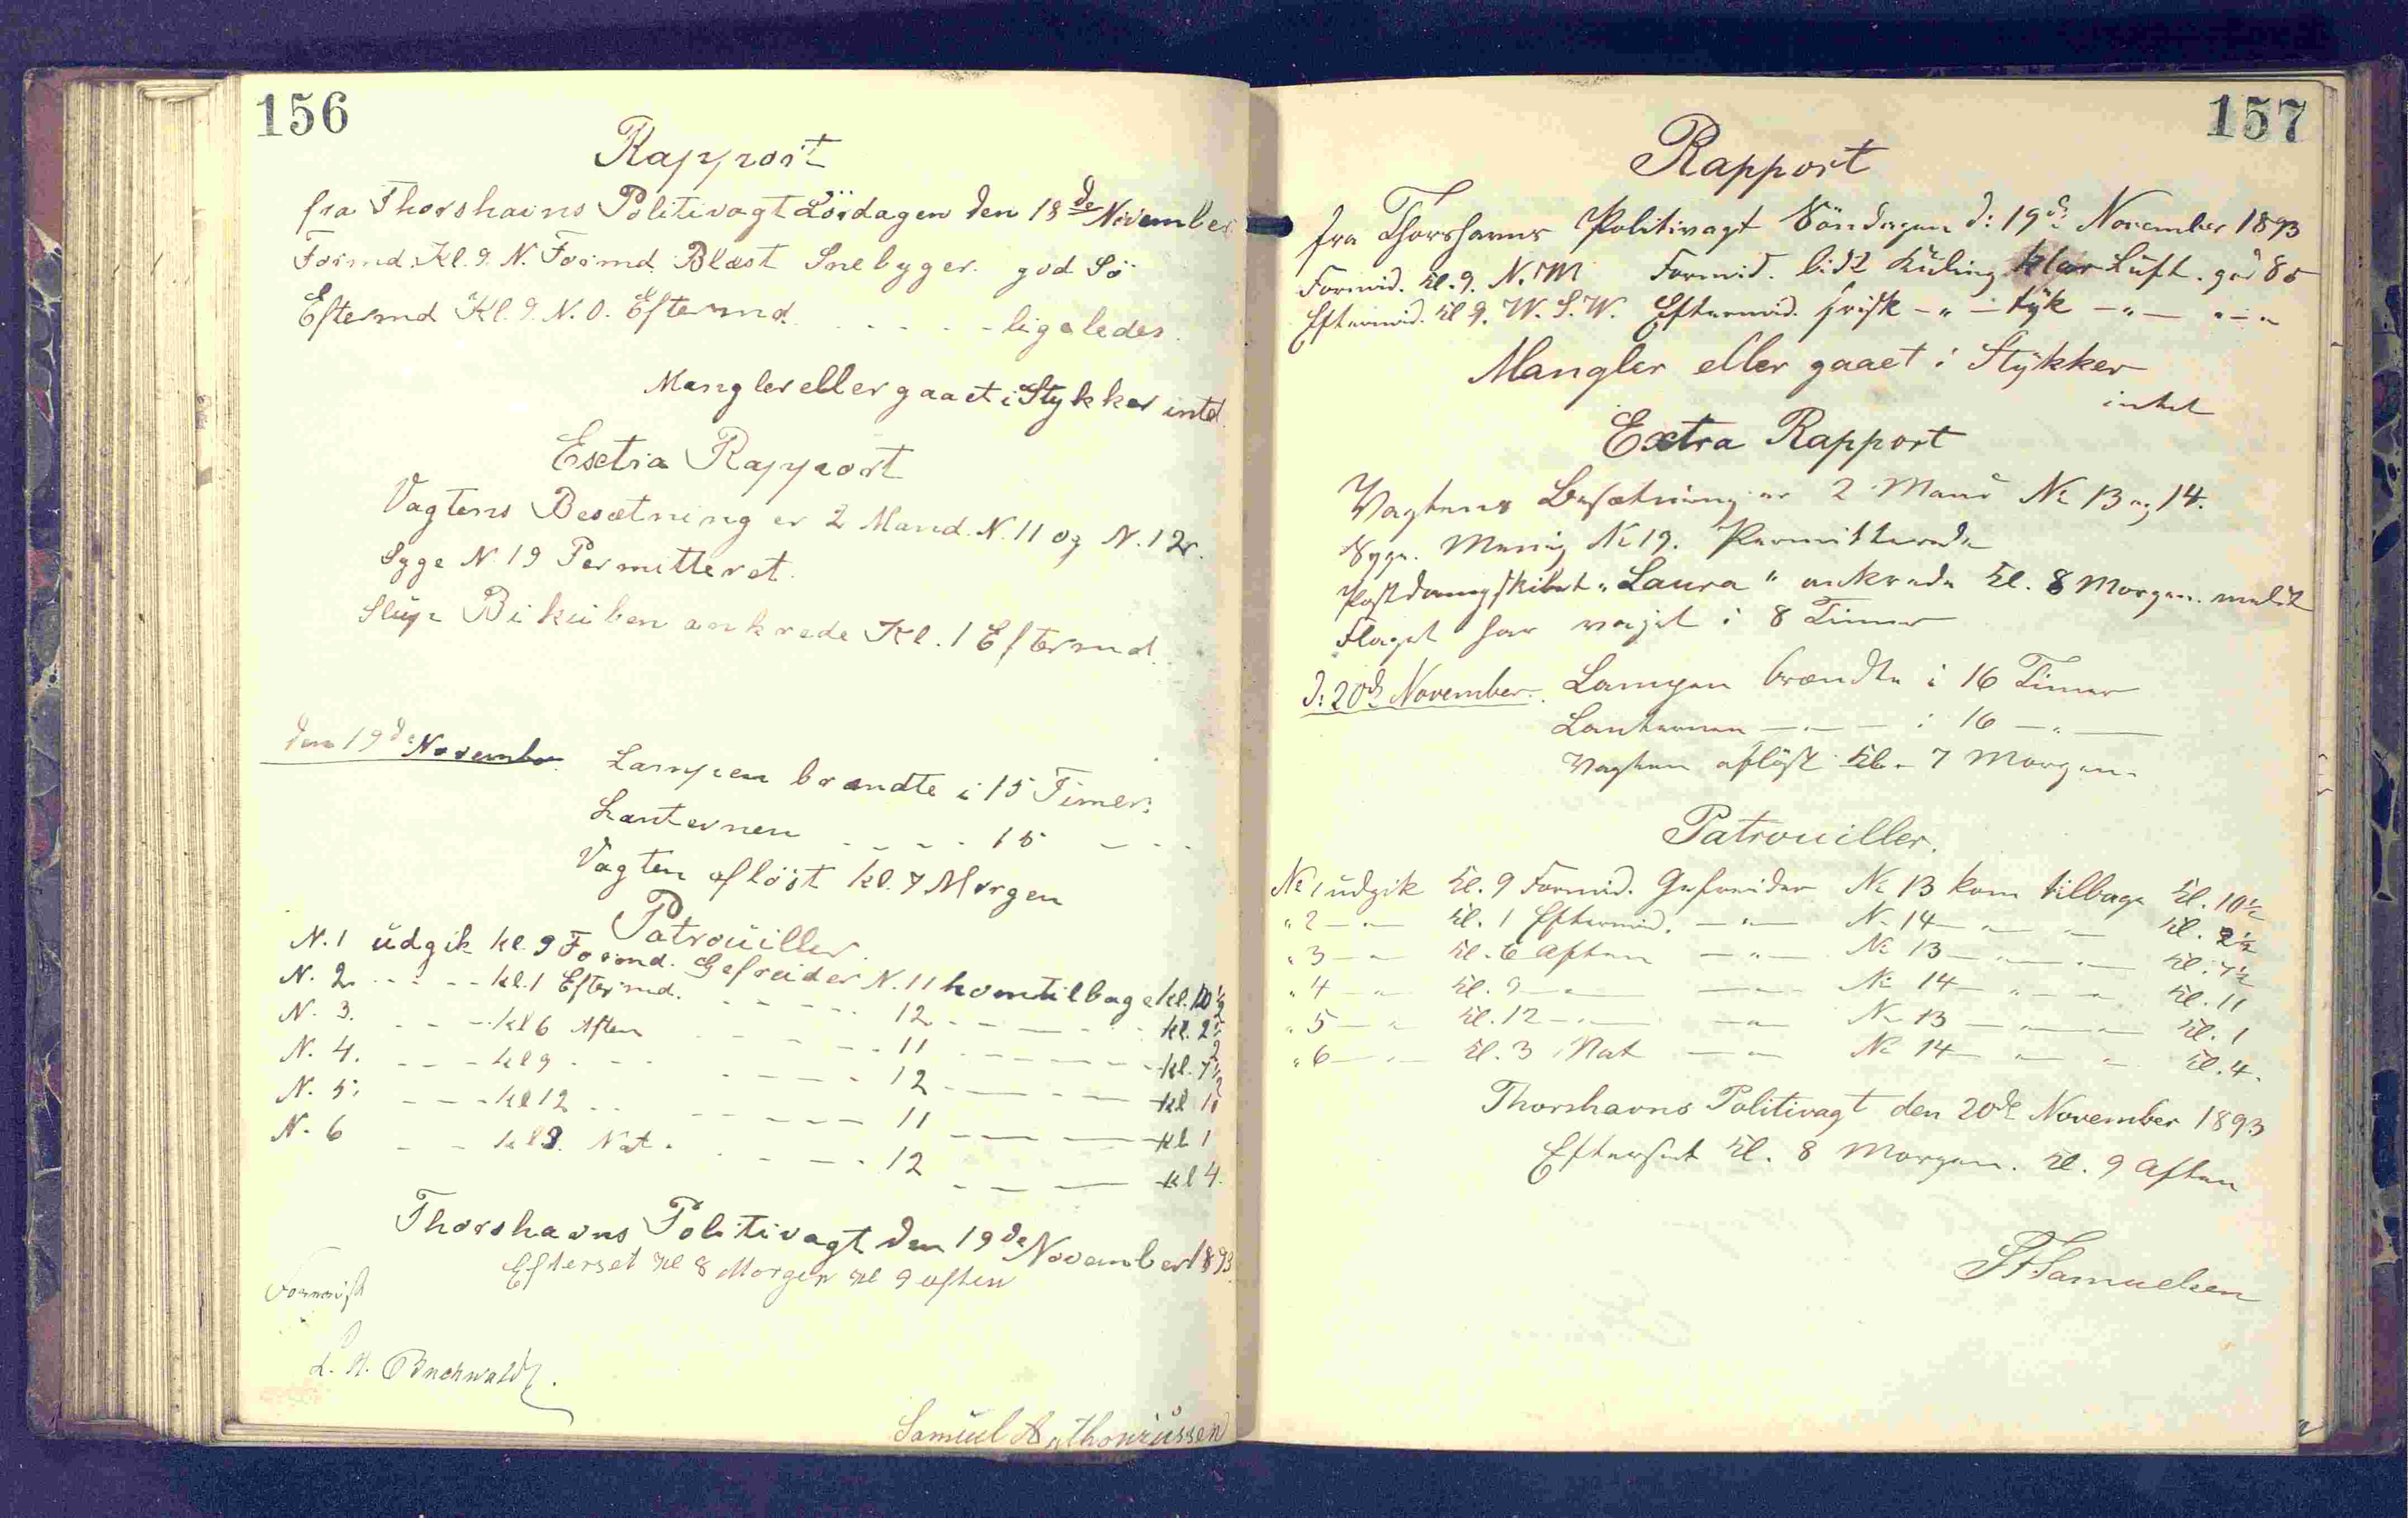 156
Rapport
fra Thorshavns Politivagt Lördagen den 18de November
Formd. Kl. 9. N. Formd. Blæst Snebyger. god Sö
Eftermd Kl. 9. N.O. Eftermd. - - - - - - ligeledes.
Mangler eller gaaet i Stykker intet.
Exctra Rapport
Vagtens Besætning er 2 Mand. N. 11 og N. 12.
Syge N 19 Permitteret.
Slup: Bikuben ankrede Kl. 1 Eftermd.
den 19de November.
Lampen brændte i 15 Timer.
Lanternen - - - - 15 - - -
Vagten aflöst kl. 7 Morgen
Patrouiller.
N. 1 udgik kl. 9 Formd. Gefreider N. 11 kom tilbage kl. 10½
N. 2. - - - - kl. 1 Eftermd. - - - - - 12 - - - - - kl. 2½
N. 3. - - - kl 6 Aften - - - - 11 - - - - - kl. 7½
N. 4. - - - kl 9 - - - - - - - 12 - - - - - kl 11
N. 5. - - - kl 12 - - - - - - 11 - - - - kl 1
N. 6 - - kl 3. Nat. - - - - 12 - - - kl 4.
Thorshavns Politivagt den 19de November 1893
Efterset Kl 8 Morgen Kl 9 aften
Forevist
L. H. Buchwaldt.
Samuel Anthoniussen
157
Rapport
fra Thorshavns Politivagt Söndagen d: 19de November 1893
Formid. Kl. 9. N.W Formid. lidt Kuling klar Luft. god Sö
Eftermid. Kl 9. W.S.W. Eftermid. frisk -"- tyk -"- "-"
Mangler eller gaaet i Stykker
intet
Extra Rapport
Vagtens Besætning er 2 Mand No 13 og 14.
Syge. Menig No 19. Permitterede
Postdampskibet "Laura" ankrede Kl. 8 Morgen.
Flaget har vajet i 8 Timer
d: 20de November. Lampen brændte i 16 Timer
Lanternen -"- i 16 -"-
Vagten aflöst Kl. 7 Morgen.
Patrouiller.
No 1 udgik Kl. 9 Formid. Gefreider No 13 kom tilbage Kl. 10½
" 2 -"- Kl. 1 Eftermid. -"- No 14 -"- "- Kl. 2½
" 3 -"- Kl. 6 Aften -"- No 13 -"- "- Kl. 7½
" 4 -"- Kl. 9 -"- -"- No 14 -"- "- Kl. 11
" 5 -"- Kl. 12 -"- -"- No 13 -"- "- Kl. 1
" 6 -"- Kl. 3 Nat -"- No 14 -"- "- Kl. 4.
Thorshavns Politivagt den 20de November 1893
Efterset Kl. 8 Morgen. Kl. 9 Aften
Samuelsen